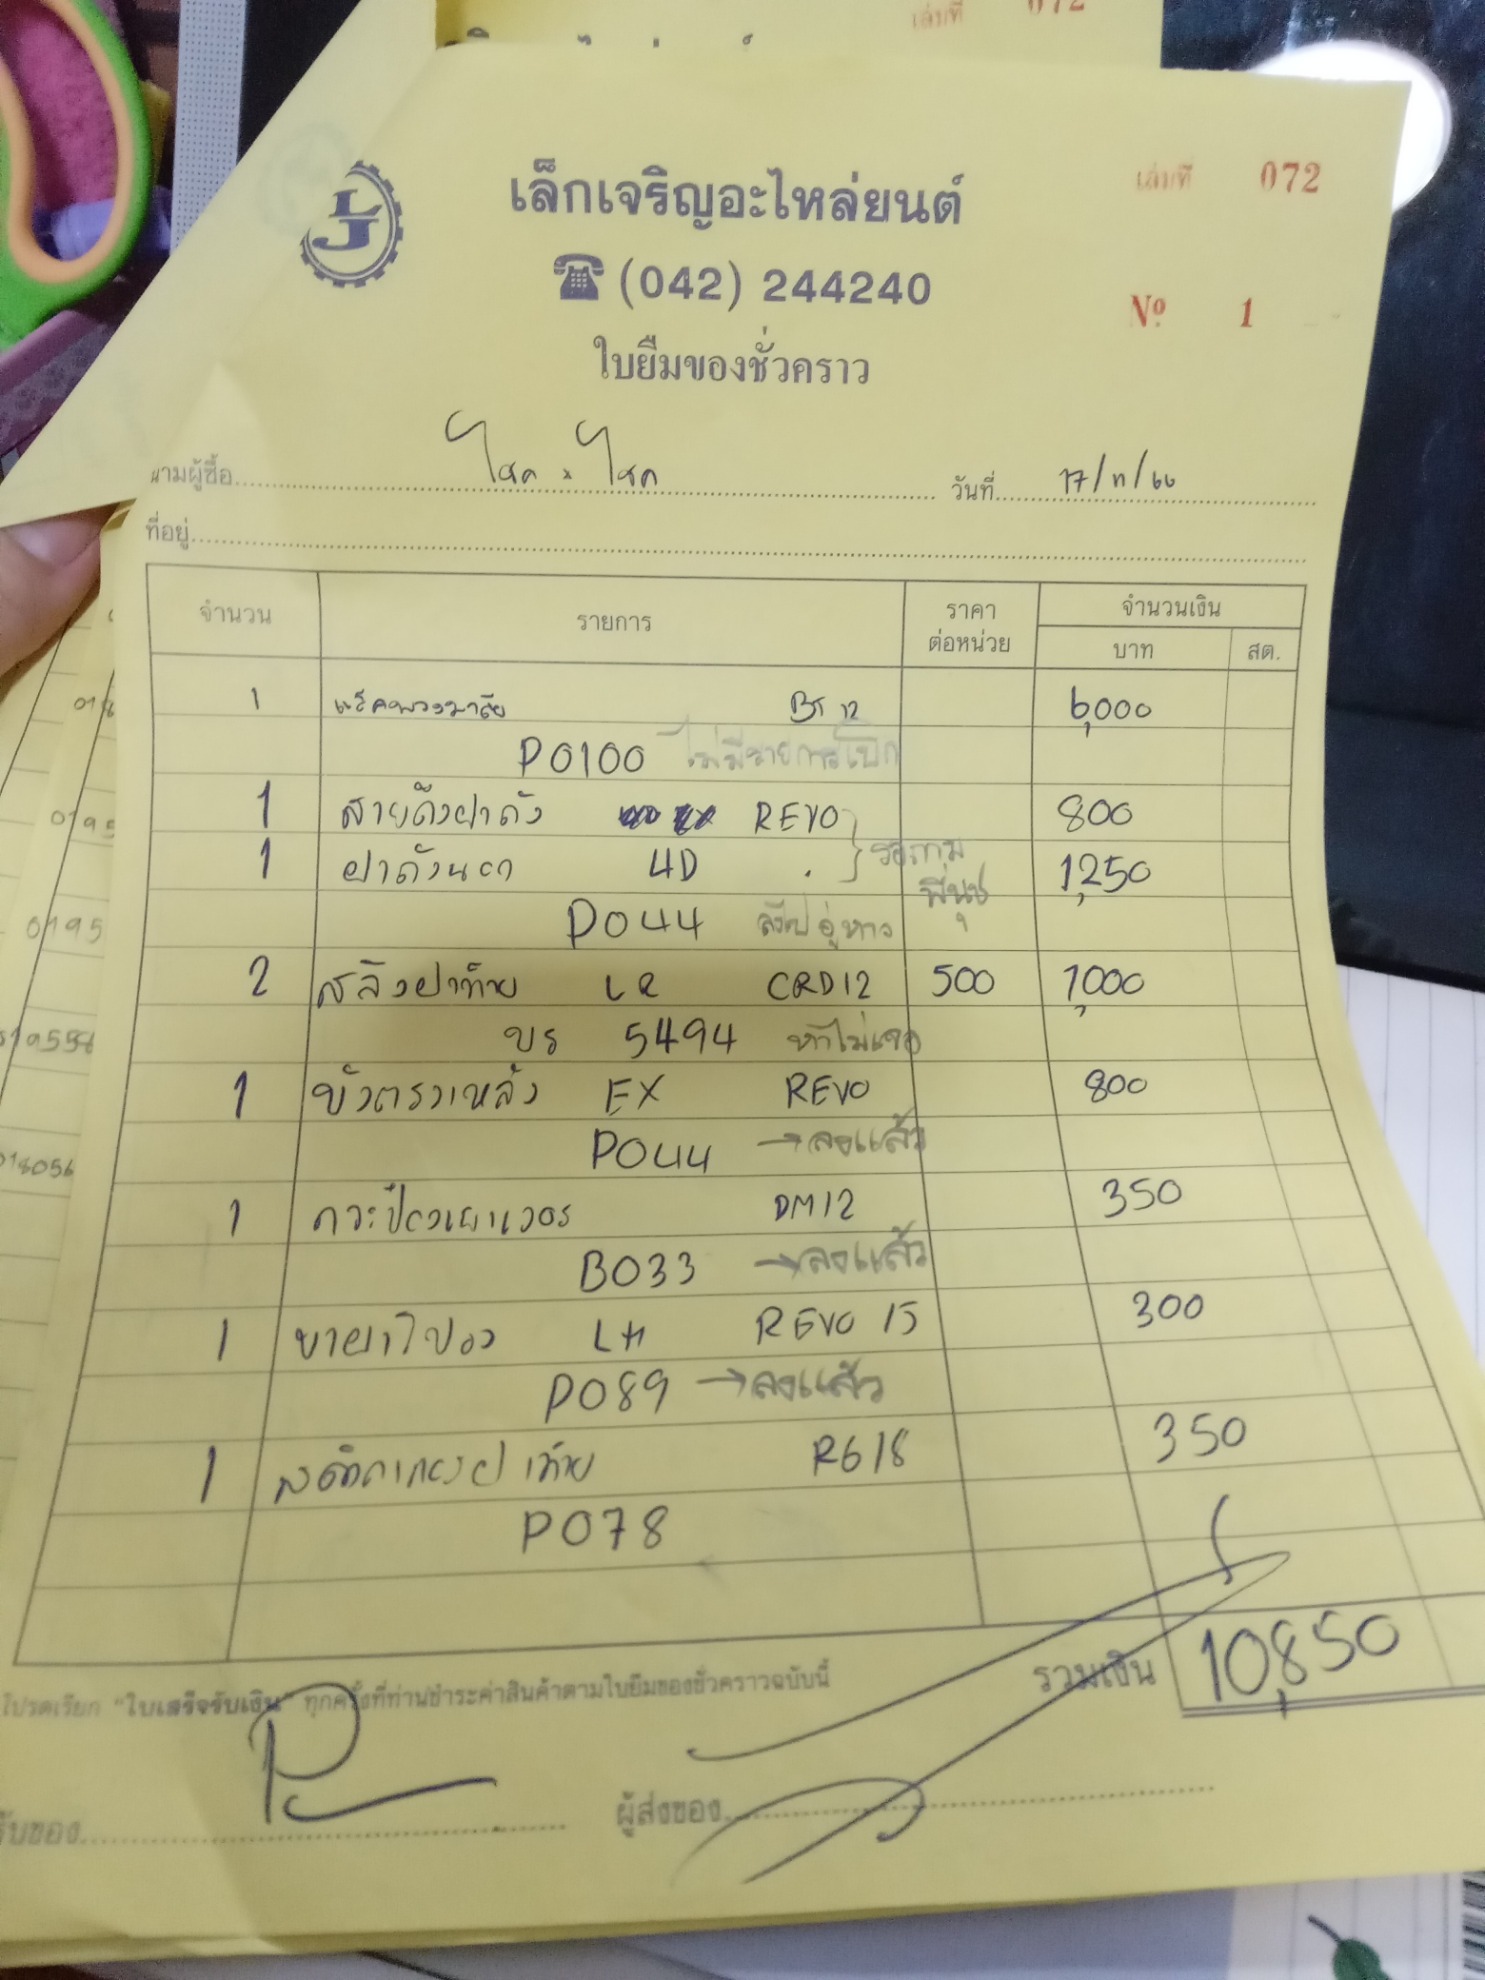 เล่มที่ 072
เล่มที่ 072
LJ
เล็กเจริญอะไหล่ยนต์
☎ (042) 244240
Nº 1
ใบยืมของชั่วคราว
นามผู้ซื้อ โชค x โชค วันที่ 17/11/66
ที่อยู่
จำนวน รายการ ราคาต่อหน่วย จำนวนเงิน
บาท สต.
1 แร็คพวงมาลัย BT 12 6,000
P0100 ไม่มีรายการเบิก
1 สายดึงฝาถัง REVO 800
1 ฝาถังนอก 4D 1,250
รอถามพี่นุช
P044
2 สลิงฝาท้าย LR CRD12 500 1,000
บร 5494 หาไม่เจอ
1 EX REVO 800
P044 → ลงแล้ว
1 DM12 350
B033 → ลงแล้ว
1 ขายาไฟ LH REVO 15 300
P089 → ลงแล้ว
1 ฝาท้าย R618 350
P078
รวมเงิน 10,850
โปรดเรียก "ใบเสร็จรับเงิน" ทุกครั้งที่ท่านชำระค่าสินค้าตามใบยืมของชั่วคราวฉบับนี้
รับของ ผู้ส่งของ